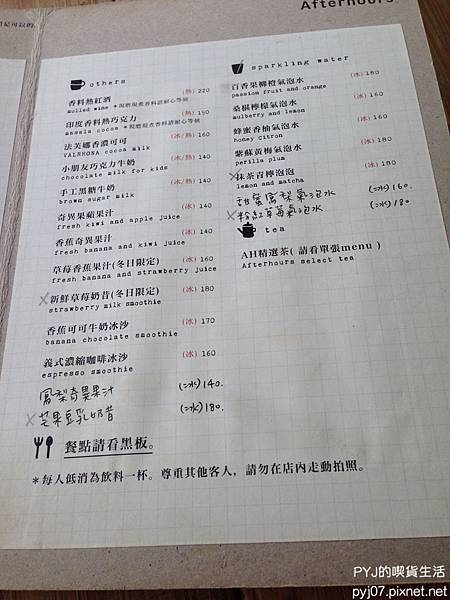 Afterhours
是可以的.
others
香料熱紅酒 (熱) 220
mulled wine *現磨現煮香料請耐心等候
印度香料熱巧克力 (熱) 190
masala cocoa *現磨現煮香料請耐心等候
法芙娜香濃可可 (冰/熱) 160
VALRHONA cocoa milk
小朋友巧克力牛奶 (冰/熱) 140
chocolate milk for kids
手工黑糖牛奶 (冰/熱) 140
brown sugar milk
奇異果蘋果汁 (冰) 140
fresh kiwi and apple juice
香蕉奇異果汁 (冰) 140
fresh banana and kiwi juice
草莓香蕉果汁(冬日限定) (冰) 160
fresh banana and strawberry juice
×新鮮草莓奶昔(冬日限定) (冰) 180
strawberry milk smoothie
香蕉可可牛奶冰沙 (冰) 170
banana chocolate smoothie
義式濃縮咖啡冰沙 (冰) 160
espresso smoothie
鳳梨奇異果汁 (冰) 140.
×芒果豆乳奶昔 (冰) 180.
餐點請看黑板。
*每人低消為飲料一杯。尊重其他客人，請勿在店內走動拍照。
sparkling water
百香果柳橙氣泡水 (冰) 180
passion fruit and orange
桑椹檸檬氣泡水 (冰) 180
mulberry and lemon
蜂蜜香柚氣泡水 (冰) 180
honey citron
紫蘇黃梅氣泡水 (冰) 180
perilla plum
×抹茶青檸泡泡 (冰) 180
lemon and matcha
甜蜜鳳梨氣泡水 (冰) 160.
×粉紅草莓氣泡水 (冰) 180
tea
AH精選茶( 請看單張menu )
Afterhours select tea
PYJ的喫貨生活
pyj07.pixnet.net